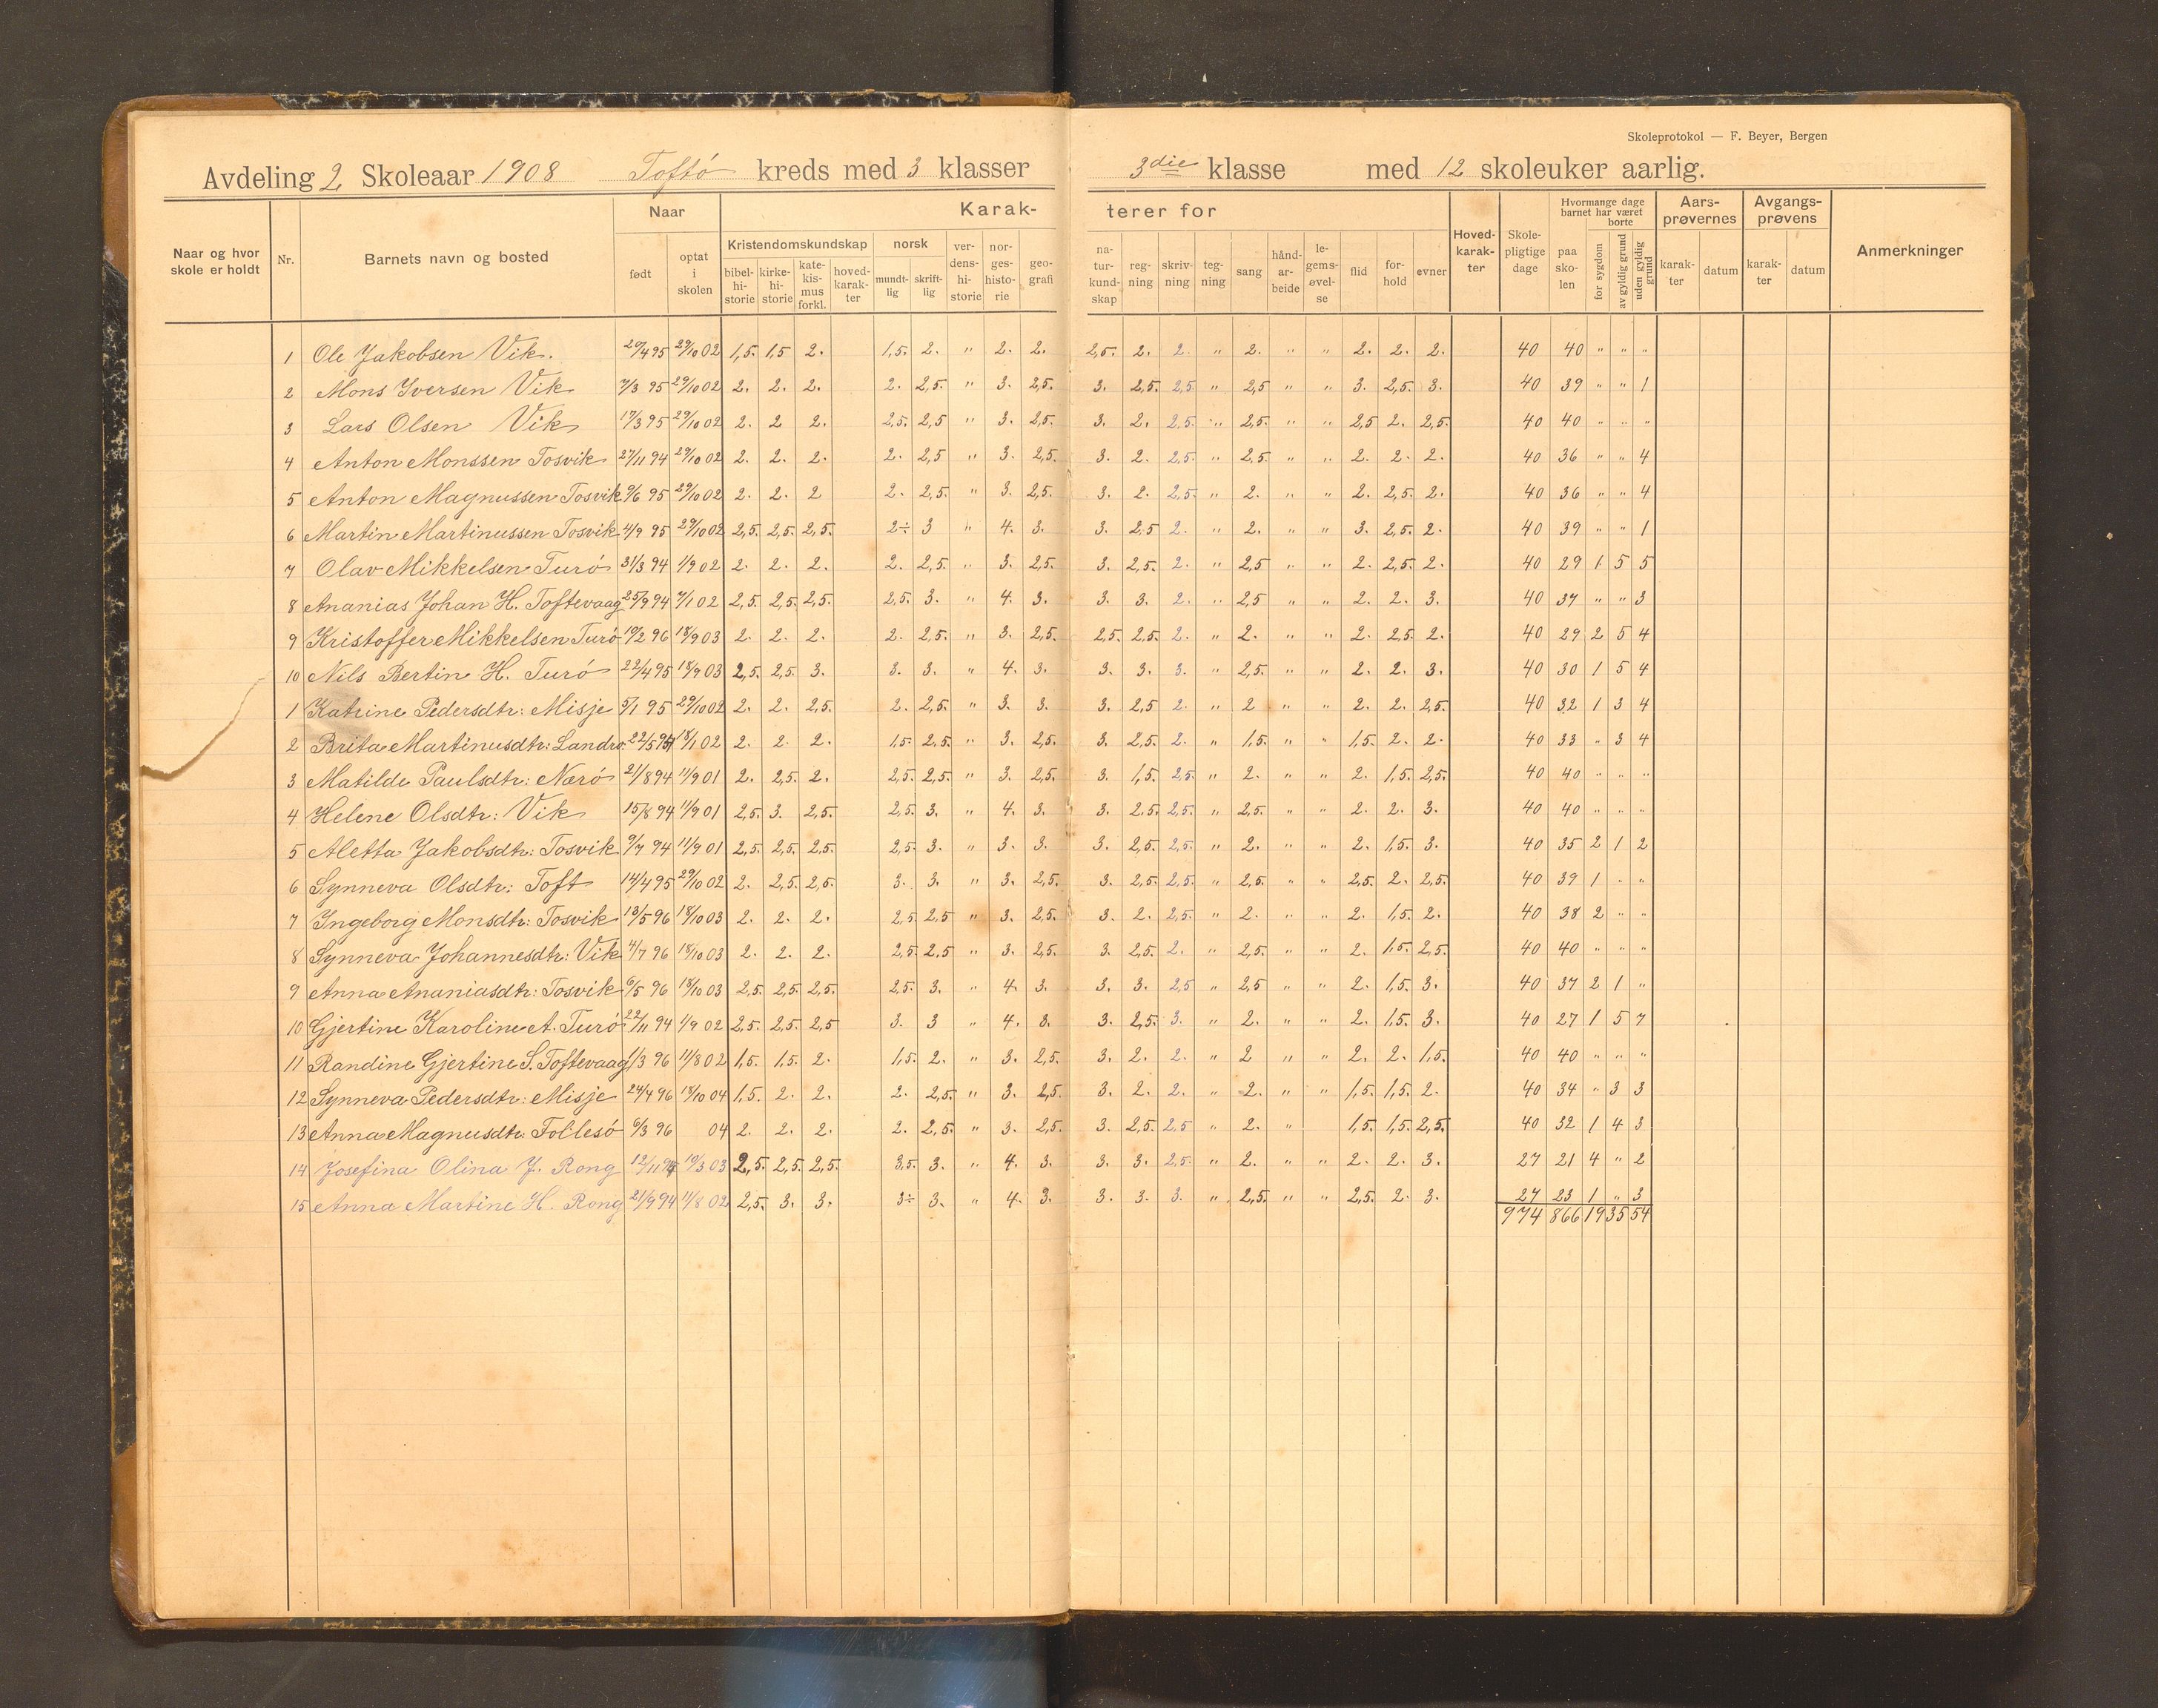 Skoleprotokol — F. Beyer, Bergen
Avdeling 2 Skoleaar 1908 Toftö kreds med 3 klasser 3die klasse med 12 skoleuker aarlig.
Naar og hvor skole er holdt Nr. Barnets navn og bosted Naar født optat i skolen Karakterer for Kristendomskundskap bibelhistorie kirkehistorie katekismus forkl. hovedkarakter norsk mundtlig skriftlig verdenshistorie norgeshistorie geografi naturkundskap regning skrivning tegning sang håndarbeide legemsøvelse flid forhold evner Hovedkarakter Skolepligtige dage paa skolen Hvormange dage barnet har været borte for sygdom av gyldig grund uden gyldig grund Aarsprøvernes karakter datum Avgangsprøvens karakter datum Anmerkninger
1 Ole Jakobsen Vik. 20/4 95 29/10 02 1,5. 1,5 2. 1,5. 2. " 2. 2. 2,5. 2. 2. " 2. " " 2. 2. 2. 40 40 " " "
2 Mons Iversen Vik 7/3 95 29/10 02 2. 2. 2. 2. 2,5. " 3. 2,5. 3. 2,5. 2,5 " 2,5 " " 3. 2,5. 3. 40 39 " " 1
3 Lars Olsen Vik 17/3 95 29/10 02 2. 2 2. 2,5. 2,5 " 3. 2,5. 3. 2. 2,5. " 2,5. " " 2,5 2. 2,5. 40 40 " " "
4 Anton Monssen Tosvik 27/11 94 29/10 02 2. 2. 2. 2. 2,5 " 3. 2,5. 3. 2. 2,5. " 2,5. " " 2. 2. 2. 40 36 " " 4
5 Anton Magnussen Tosvik 9/6 95 29/10 02 2. 2. 2 2. 2,5. " 3. 2,5. 3. 2. 2,5. " 2. " " 2. 2,5. 2. 40 36 " " 4
6 Martin Martinussen Tosvik 4/9 95 29/10 02 2,5. 2,5. 2,5. 2÷ 3 " 4. 3. 3. 2,5 2. " 2. " " 3. 2,5. 2. 40 39 " " 1
7 Olav Mikkelsen Turö 31/3 94 1/9 02 2. 2. 2. 2. 2,5. " 3. 2,5. 3. 2,5. 2. " 2,5 " " 2. 2,5. 2. 40 29 1 5 5
8 Ananias Johan H. Toftevaag 25/9 94 7/1 02 2,5. 2,5. 2,5. 2,5. 3. " 4. 3. 3. 3. 2. " 2,5 " " 2. 2. 3. 40 37 " " 3
9 Kristoffer Mikkelsen Turö 19/2 96 18/9 03 2. 2. 2. 2. 2,5. " 3. 2,5. 2,5. 2,5. 2. " 2. " " 2. 2,5 2. 40 29 2 5 4
10 Nils Bertin H. Turö 22/4 95 18/9 03 2,5. 2,5. 3. 3. 3. " 4. 3. 3. 3. 3. " 2,5. " " 2. 2. 3. 40 30 1 5 4
1 Katrine Pedersdtr: Misje 5/1 95 29/10 02 2. 2. 2,5. 2. 2,5. " 3. 3. 3. 2,5 2. " 2 " " 2. 2. 2,5. 40 32 1 3 4
2 Brita Martinusdtr: Landro 22/5 18/1 02 2. 2. 2. 1,5. 2,5. " 3. 2,5. 3. 2,5. 2. " 1,5. " " 1,5. 2. 2. 40 33 " 3 4
3 Matilde Paulsdtr: Nærö 21/8 94 11/9 01 2. 2,5. 2. 2,5. 2,5. " 3. 2,5. 3. 1,5. 2,5 " 2. " " 2. 1,5. 2,5. 40 40 " " "
4 Helene Olsdtr: Vik 15/8 94 11/9 01 2,5. 3. 2,5. 2,5. 3. " 4. 3. 3. 2,5. 2,5. " 2,5. " " 2. 2. 3. 40 40 " " "
5 Aletta Jakobsdtr: Tosvik 9/7 94 11/9 01 2,5. 2,5. 2,5. 2,5. 3. " 3. 3. 3. 2,5. 2,5. " 2. " " 2. 1,5. 3. 40 35 2 1 2
6 Synneva Olsdtr: Toft 14/4 95 29/10 02 2. 2,5. 2,5. 3. 3. " 3. 2,5. 3. 2,5. 2,5. " 2,5. " " 2,5. 2. 2,5. 40 39 1 " "
7 Ingeborg Monsdtr: Tosvik 13/5 96 18/10 03 2. 2. 2. 2,5. 2,5 " 3. 2,5. 3. 2. 2,5. " 2. " " 2. 1,5. 2. 40 38 2 " "
8 Synneva Johannesdtr: Vik 4/7 96 18/10 03 2. 2. 2. 2,5. 2,5 " 3. 2,5. 3. 2,5. 2. " 2,5. " " 2. 1,5. 2,5. 40 40 " " "
9 Anna Ananiasdtr: Tosvik 6/5 96 18/10 03 2,5. 2,5. 2,5. 2,5. 3. " 4. 3. 3. 3. 2,5 " 2,5 " " 2. 1,5. 3. 40 37 2 1 "
10 Gjertine Karoline A. Turö 22/11 94 1/9 02 2,5. 2,5. 2,5 3. 3 " 4. 3. 3. 2,5. 3. " 2. " " 2. 1,5. 3. 40 27 1 5 7
11 Randine Gjertine S. Toftevaag 1/3 96 11/8 02 1,5. 1,5. 2. 1,5. 2. " 3. 2,5. 3. 2. 2. " 2 " " 2. 2. 1,5. 40 40 " " "
12 Synneva Pedersdtr: Misje 24/4 96 18/10 04 1,5. 2. 2. 2. 2,5. " 3. 2,5. 3. 2. 2. " 2. " " 1,5. 1,5. 2. 40 34 " 3 3
13 Anna Magnusdtr: Follesö 6/3 96 04 2. 2. 2. 2. 2,5. " 3. 2,5. 3. 2,5. 2,5 " 2. " 1,5. 1,5. 2,5. 40 32 1 4 3
14 Josefina Olina J. Rong 12/11 94 19/3 03 2,5. 2,5. 2,5. 3,5. 3. " 4. 3. 3. 3. 2,5. " 2. " " 2. 2. 3. 27 21 4 " 2
15 Anna Martine H. Rong 21/9 94 11/8 02 2,5. 3. 3. 3÷ 3. " 4. 3. 3. 3. 3. " 2,5. " " 2,5. 2. 3. 27 23 1 " 3
974 866 19 35 54